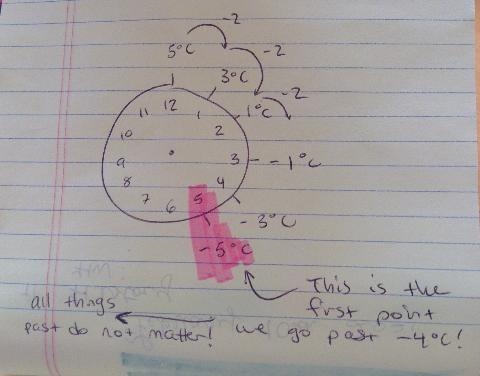 -2
5°C
-2
3°C
-2
1°C
11 12 1
10 2
9 3 - -1°C
8 4
7 6 5
-3°C
-5°C
This is the
first point
we go past -4°C!
all things
past do not matter!